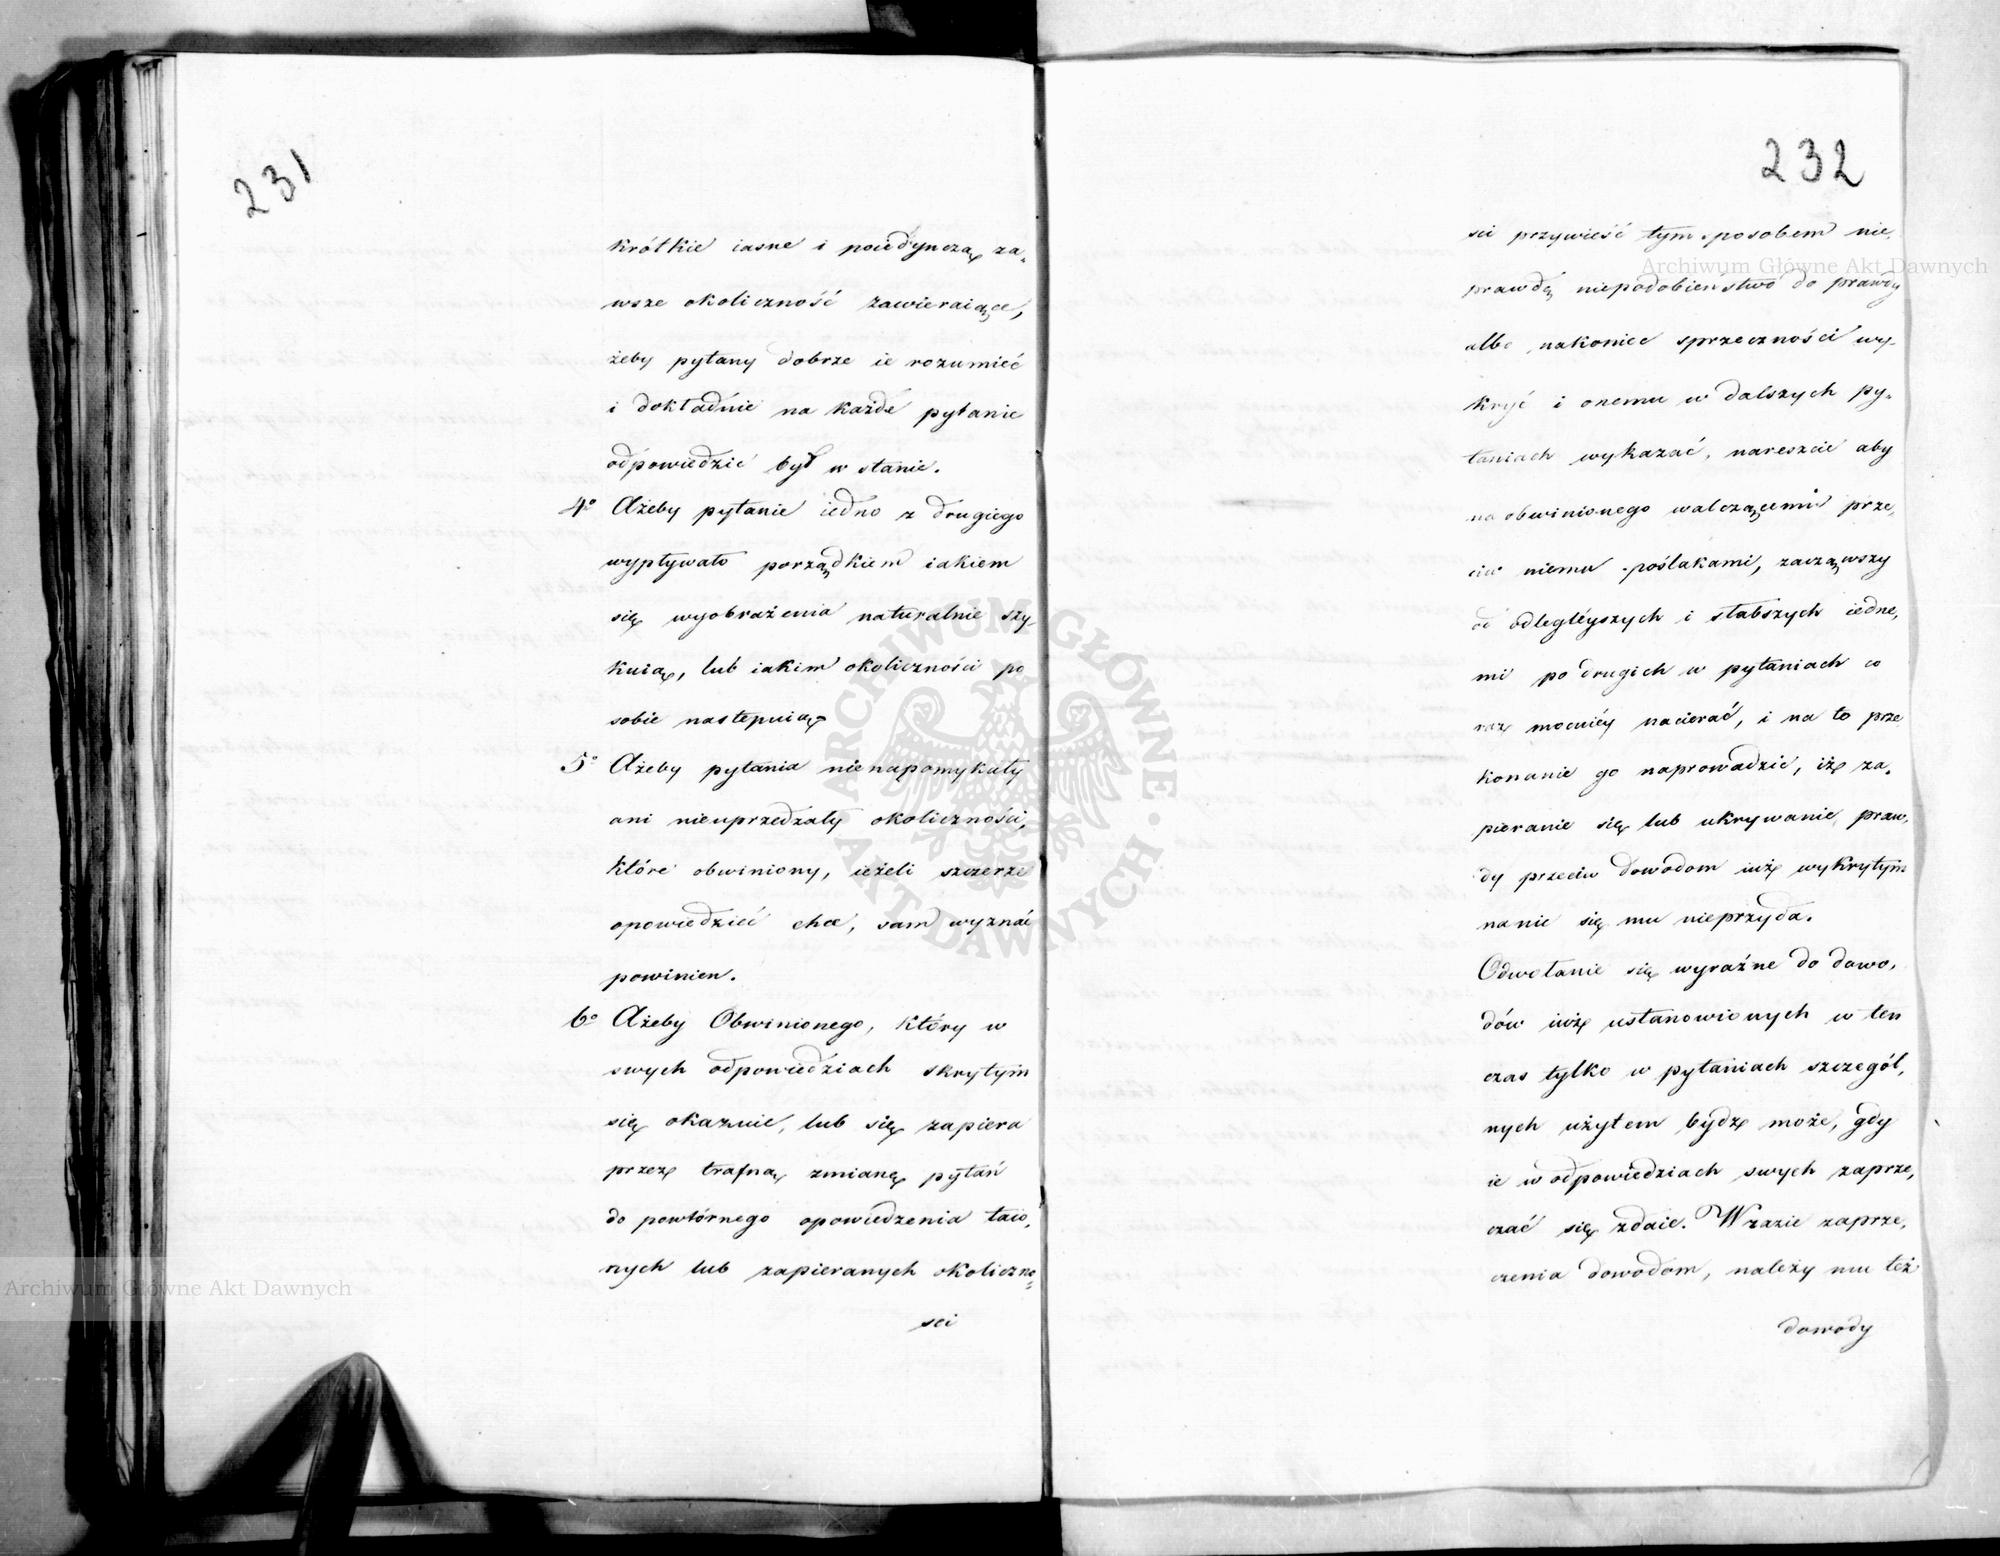 231
krótkie iasne i poiedynczą za„
wsze okoliczność zawieraiące,
żeby pytany dobrze ie rozumieć
i dokładnie na każde pytanie
odpowiedzić był w stanie.
4o Ażeby pytanie iedno z drugiego
wypływało porządkiem iakiem
się wyobrażenia naturalnie szy„
kuią, lub iakim okoliczności po
sobie nastepuią
5o Ażeby pytania nienapomykały
ani nieuprzedzały okoliczności,
które obwiniony, ieżeli szczerze
opowiedzieć chce, sam wyznać
powinien.
6o Ażeby Obwinionego, który w
swych odpowiedziach skrytym
się okazuie, lub się zapiera
przez trafną zmianę pytań
do powtórnego opowiedzenia taio„
nych lub zapieranych okoliczno„
sci
232
sci przywieść tym sposobem nie„
prawdę niepodobieństwo do prawdy
albo nakoniec sprzeczności wy„
kryć i onemu w dalszych py„
taniach wykazać, nareszcie aby
na obwinionego walczącemi prze„
ciw niemu poślakami, zacząwszy
od odległéyszych i słabszych iedne„
mi po drugich w pytaniach co
raz mocniéy nacierać, i na to prze
konanie go naprowadzić, iż za„
pieranie się lub ukrywanie praw„
dy przeciw dowodom iuż wykrytym
nanic się mu nieprzyda.
Odwołanie się wyraźne do dowo„
dów iuż ustanowionych w ten
czas tylko w pytaniach szczegól„
nych użytem bydź może, gdy
ie w odpowiedziach swych zaprze„
czać się zdaie. W razie zaprze„
czenia dowodom, należy mu też
dowody
Archiwum Główne Akt Dawnych
Archiwum Główne Akt Dawnych
ARCHIWUM GŁÓWNE · AKT DAWNYCH ·